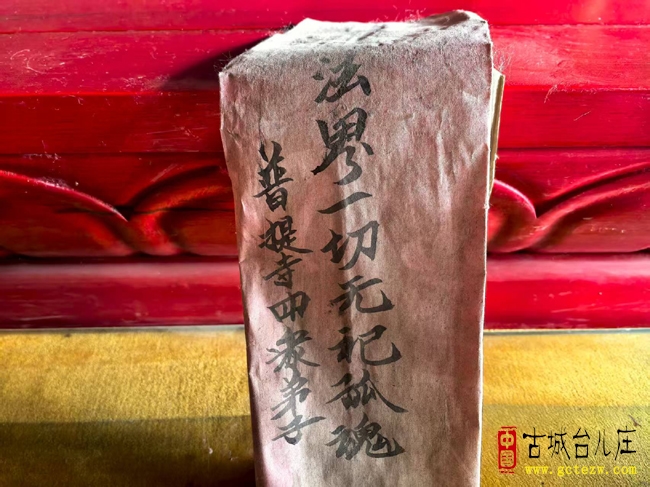 法界一切无祀孤魂
普提寺四众弟子
中国
古城台儿庄
www.gctezw.com